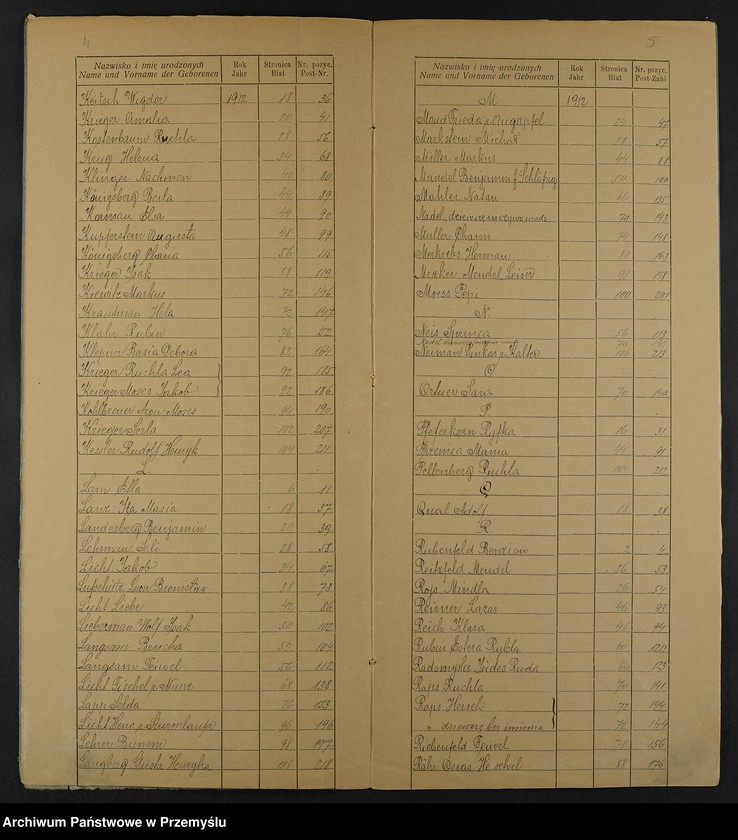 4
Nazwisko i imię urodzonych
Name und Vorname der Geborenen
Rok
Jahr
Stronica
Blat
Nr. pozyc.
Post-Nr.
Keitsch Wigdor 1912 18 36
Krieger Amalia 20 41
Kostenbaum Ruchla 28 56
Krug Helena 34 68
Klinger Nachmen 40 80
Königsberg Beila 44 89
Korman Elsa 44 90
Kupferstein Augusta 48 99
Königsberg Chana 56
Krieger Isak 58 119
Kiewitz Markus 72 146
Krautman Hela 72 147
Klahr Rubin 76
Klapner Basia Debora 82 164
Krieger Ruchla Lea 92 185
Krieger Moses Jakob 92 186
Kohlbrener Aron Moses 94 190
Krieger Serla 102 207
Kessler Rudolf Henryk 104 211
L
Lam Ella 6 11
Lanz Ita Masia 18 37
Landesberg Benjamin 20 39
Lehrman 28 58
Licht Jakob 67
Lipschütz Leon Bronisław 78
Licht Liebe 42 86
Lieberman Wolf Isak 50 102
Langsam Brucha 52 104
Langsam Feiwel 56 112
Licht Fischel v. Münz 68 138
Lapp Selda 76 153
Licht Henc v. Sturmlaufer 96 196
Lehrer Bunem 98 197
Langberg Gusta Henryka 108 218
5
Nazwisko i imię urodzonych
Name und Vorname der Geborenen
Rok
Jahr
Stronica
Blatt
Nr. pozyc.
Post-Zahl
M 1912
Mond Frieda v. Augapfel 24 47
Markstein Michał 28 57
Miller Markus 44 88
Mandel Benjamin f. Schlafrig 50 100
Mahler Natan 66 135
Nadel, dziewcz. nieżywo urodz. 70 143
Müller Chaim 74 148
Merkicbs Herman 80 161
Mezker Mendel Leiser
Moess Pepi 100 201
N
Neis Sprinca 56 113
Neiman Pinkas v. Kalter 106 213
O
Ortner Sara 70 140
P
Pfeferkorn Ryfka 16 31
Premica Mania 91
Pellenberg Ruchla 104 212
Q
Qual Adolf 18 38
R
Rubenfeld Benzion 2 4
Reitzfeld Mendel 26 53
Raps Mindla 26 54
Reisner Lazar 46 93
Reich Klara 46 94
Rubin Estera Rykla 60 120
Radomysler Judes Ruda 60 123
Raps Ruchla 70 141
Raps Hersch 72 144
" dziewczę bez imienia 72 144
Riebenfeld Feiwel 78 156
Röhr Osias Heschel 88 176
Archiwum Państwowe w Przemyślu